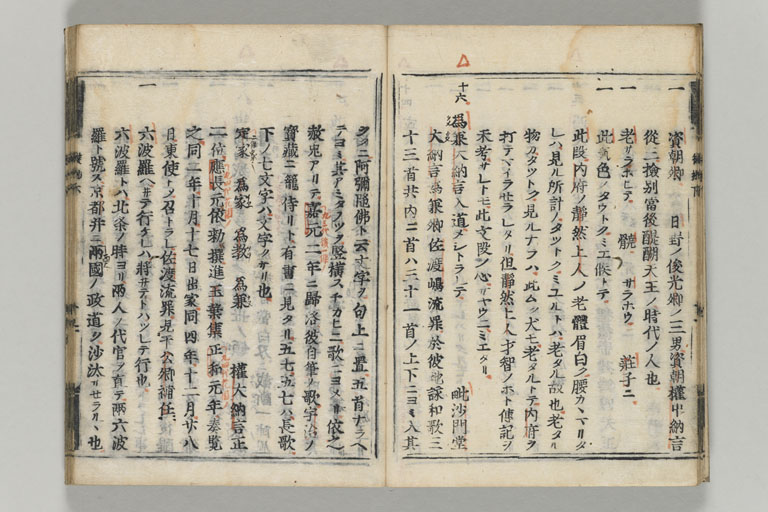 一 資朝卿 日野ノ俊光卿ノ三男資朝權中納言
從三撿別當後醍醐天王ノ時代ノ人也
一 老サラホヒテ 髐 サラホウ 莊子ニ
一 此氣色ノタウトクミエ候トテ
此段内府ノ靜然上人ノ老體眉白ク腰カヾマリタ
レハ見ル所計ノタツトクミユルトハ老タル故也老タル
物カタツトク見ルナラハ此ムク犬モ老タルトテ内府ヲ
打テマイラセラレタリ但靜然上人才智ノホト傳記ヲ
未考サレトモ此文段ノ心ハヤウニミエタリ
十六 爲兼大納言入道メシトラレテ 毗沙門堂
大納言爲兼卿佐渡嶋流罪於彼地詠和歌三
十三首共内二首ハ三十一首ノ上下ニヨミ入其
クヲ三阿彌陀佛ト云文字ヲ句上ニ置五首ナラヘ
テヨミ其アミタノツタ竪横スチカヒニ歌ニヨメリ依之
赦免アリテ嘉元二年ニ歸洛彼自筆ノ歌宇治ノ
寶藏ニ籠侍リト有書ニ見タリ五七五七ハ長歌
下ノ七文字ハ文字クサリ也
定家 爲家 爲教 爲兼 權大納言正
二位應長元依勅撰進玉葉集正和元年奏覧
之同二年十月十七日出家同四年十二月廿八
日東使トシテ召トラレ佐渡流罪見于公卿補任
一 六波羅ヘ行ケレハ將サテトハツレテ行也
六波羅トハ北条ノ時ヨリ兩人ノ代官ヲ直テ兩六波
羅ト號ス京都并ニ兩國ノ政道ヲ沙汰サセラルヽ也